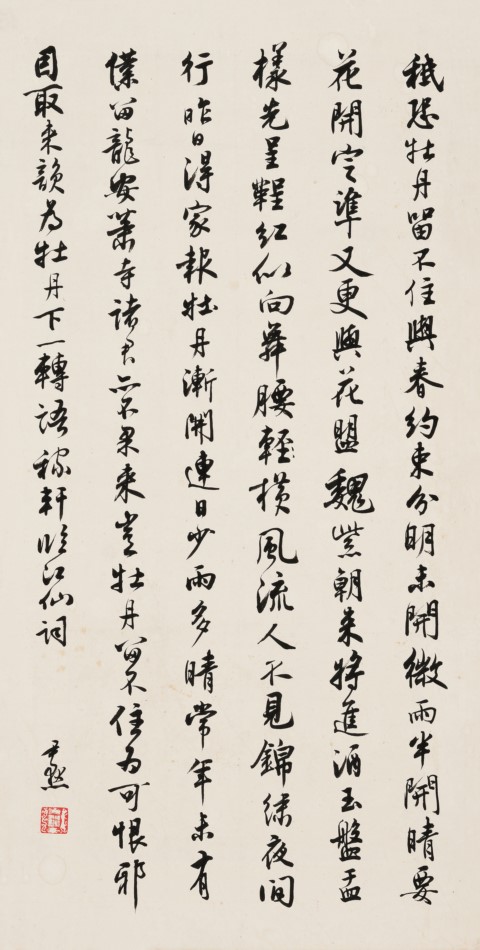 祗恐牡丹留不住與春約束分明未開微雨半開晴要
花開定準又更與花盟魏紫朝来將進酒玉盤盂
樣先呈鞓紅似向舞腰輕橫風流人不見錦繡夜間
行昨日得家報牡丹漸開連日少雨多晴常年未有
僕留龍安蕭寺諸君亦不果来豈牡丹留不住為可恨邪
因取来韻為牡丹下一轉語稼軒臨江仙詞
尹默